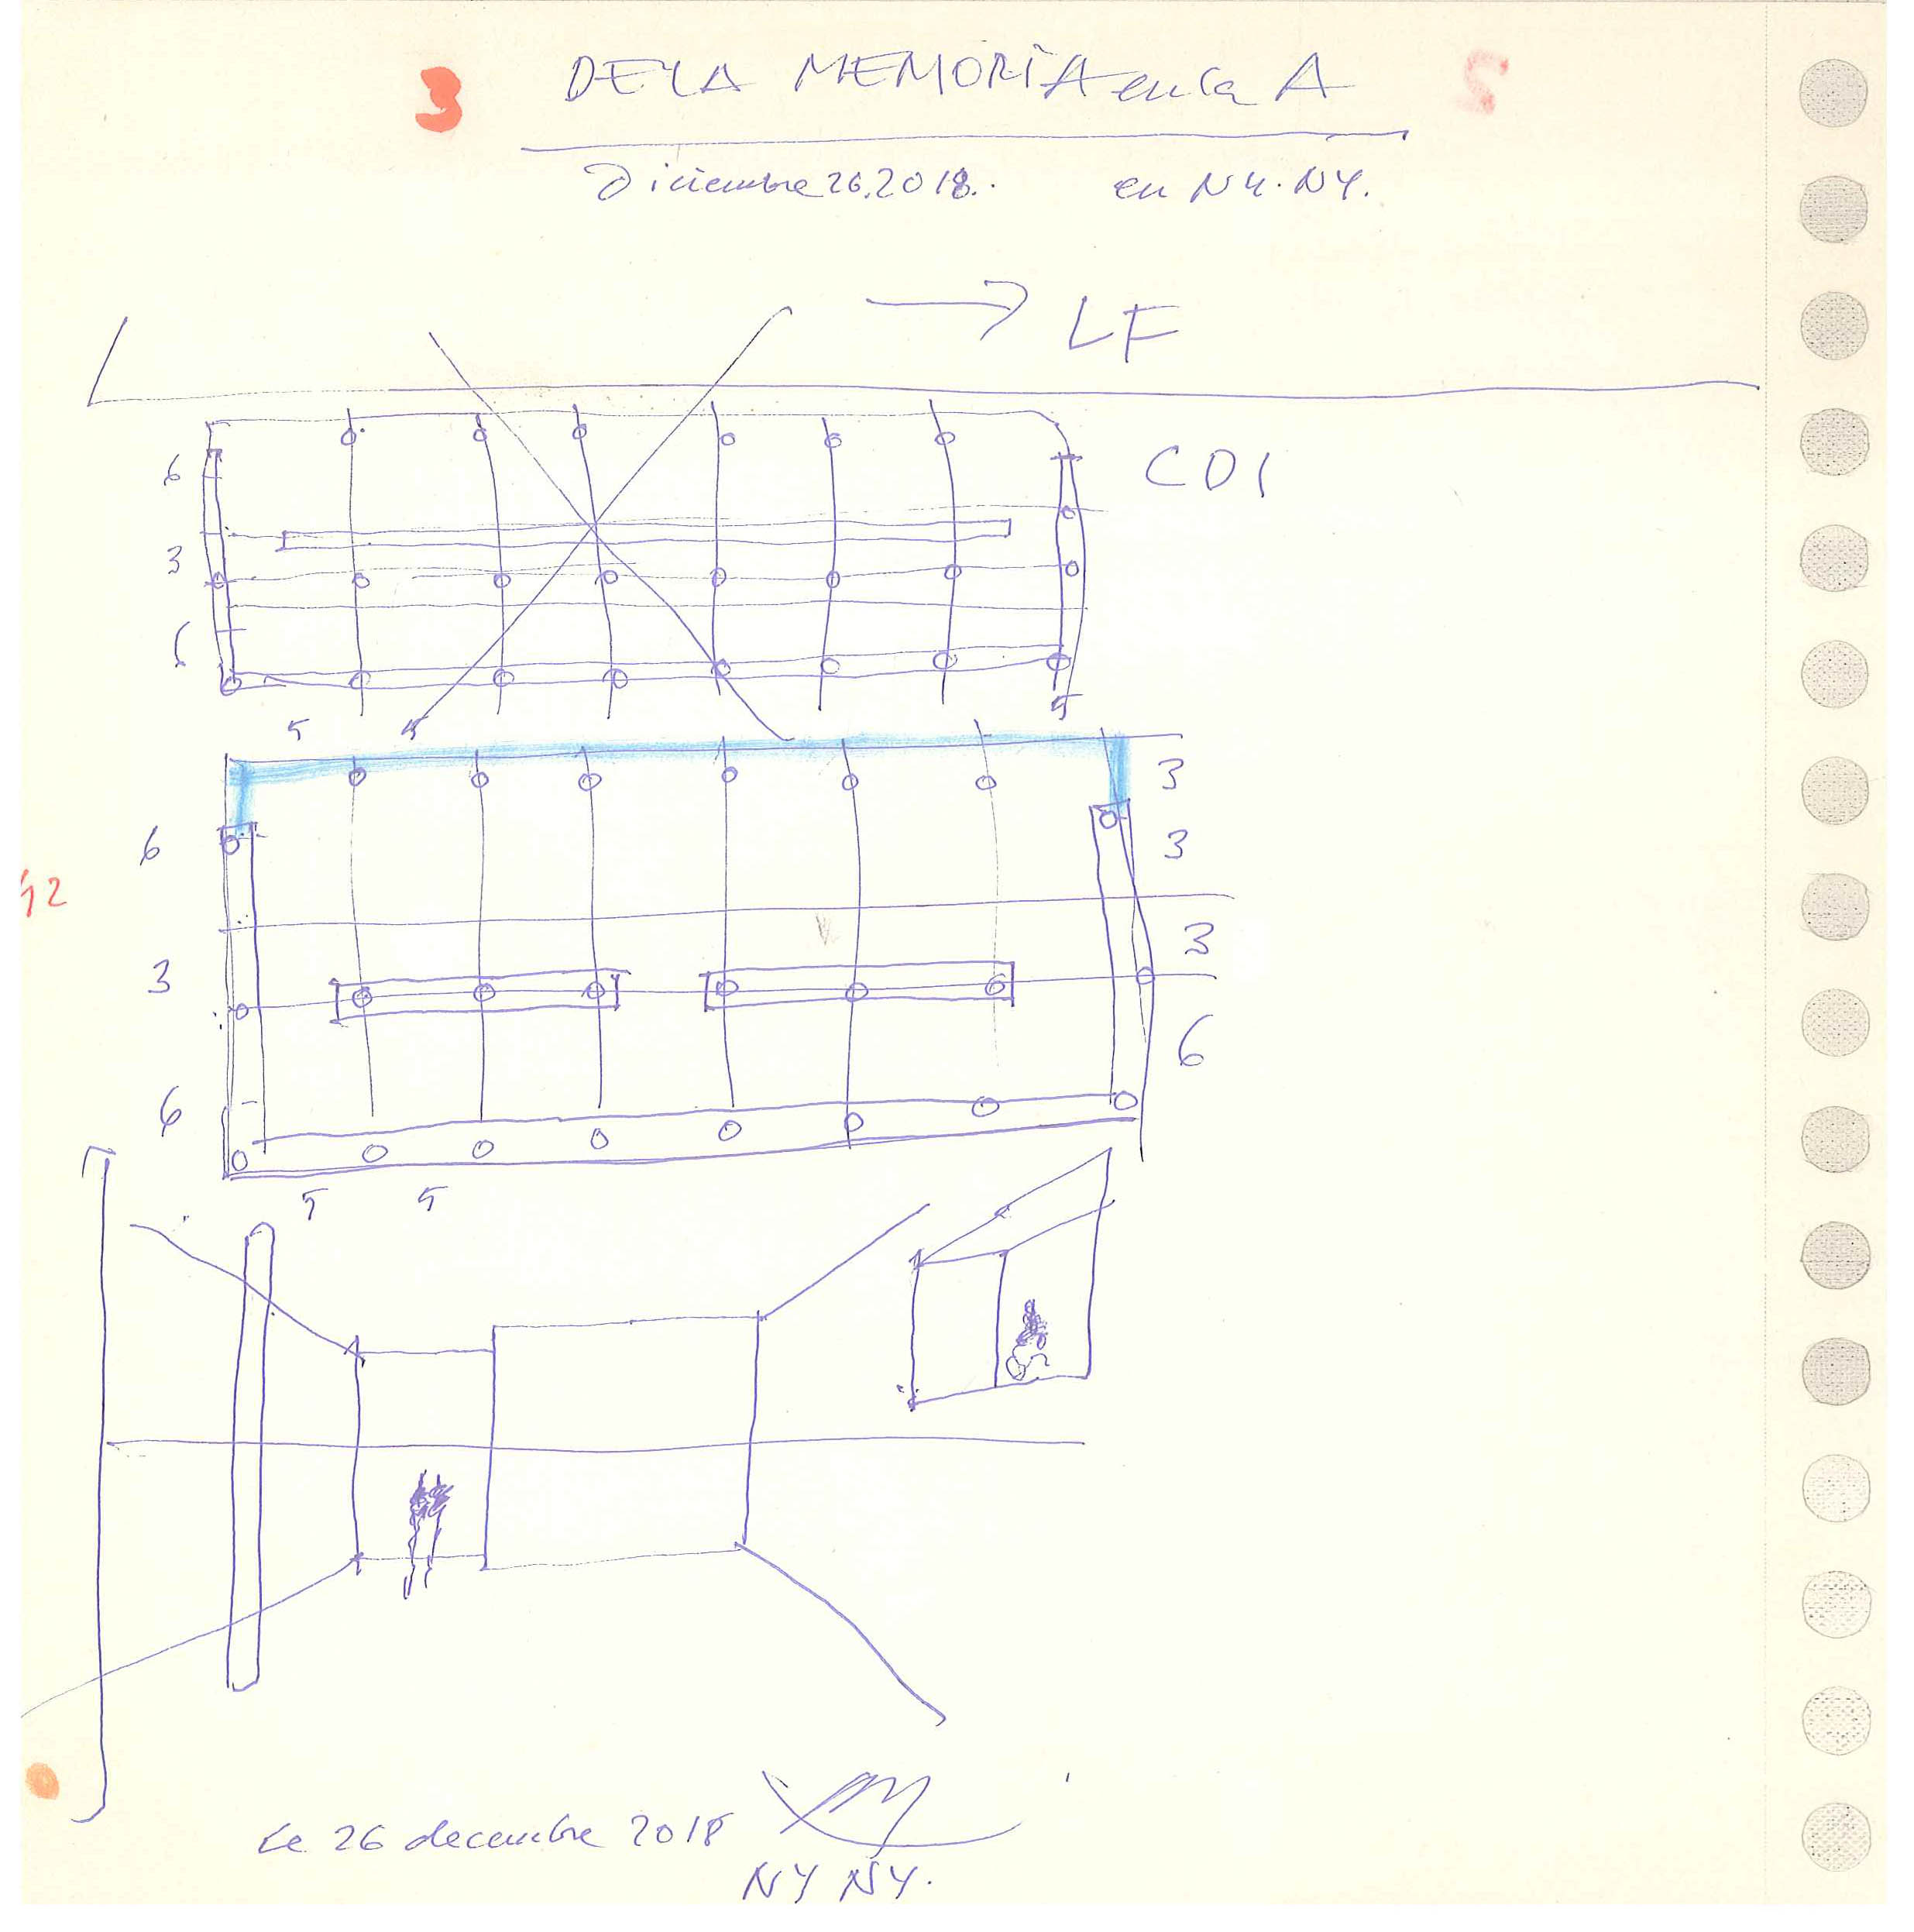 3 DE LA MEMORIA en la A
Diciembre 26, 2018. en NY. NY.
→ LF
6
CD1
3
6
5 5 5
3
6 3
12
3
3
6
6
5 5
Le 26 decembre 2018
NY NY.